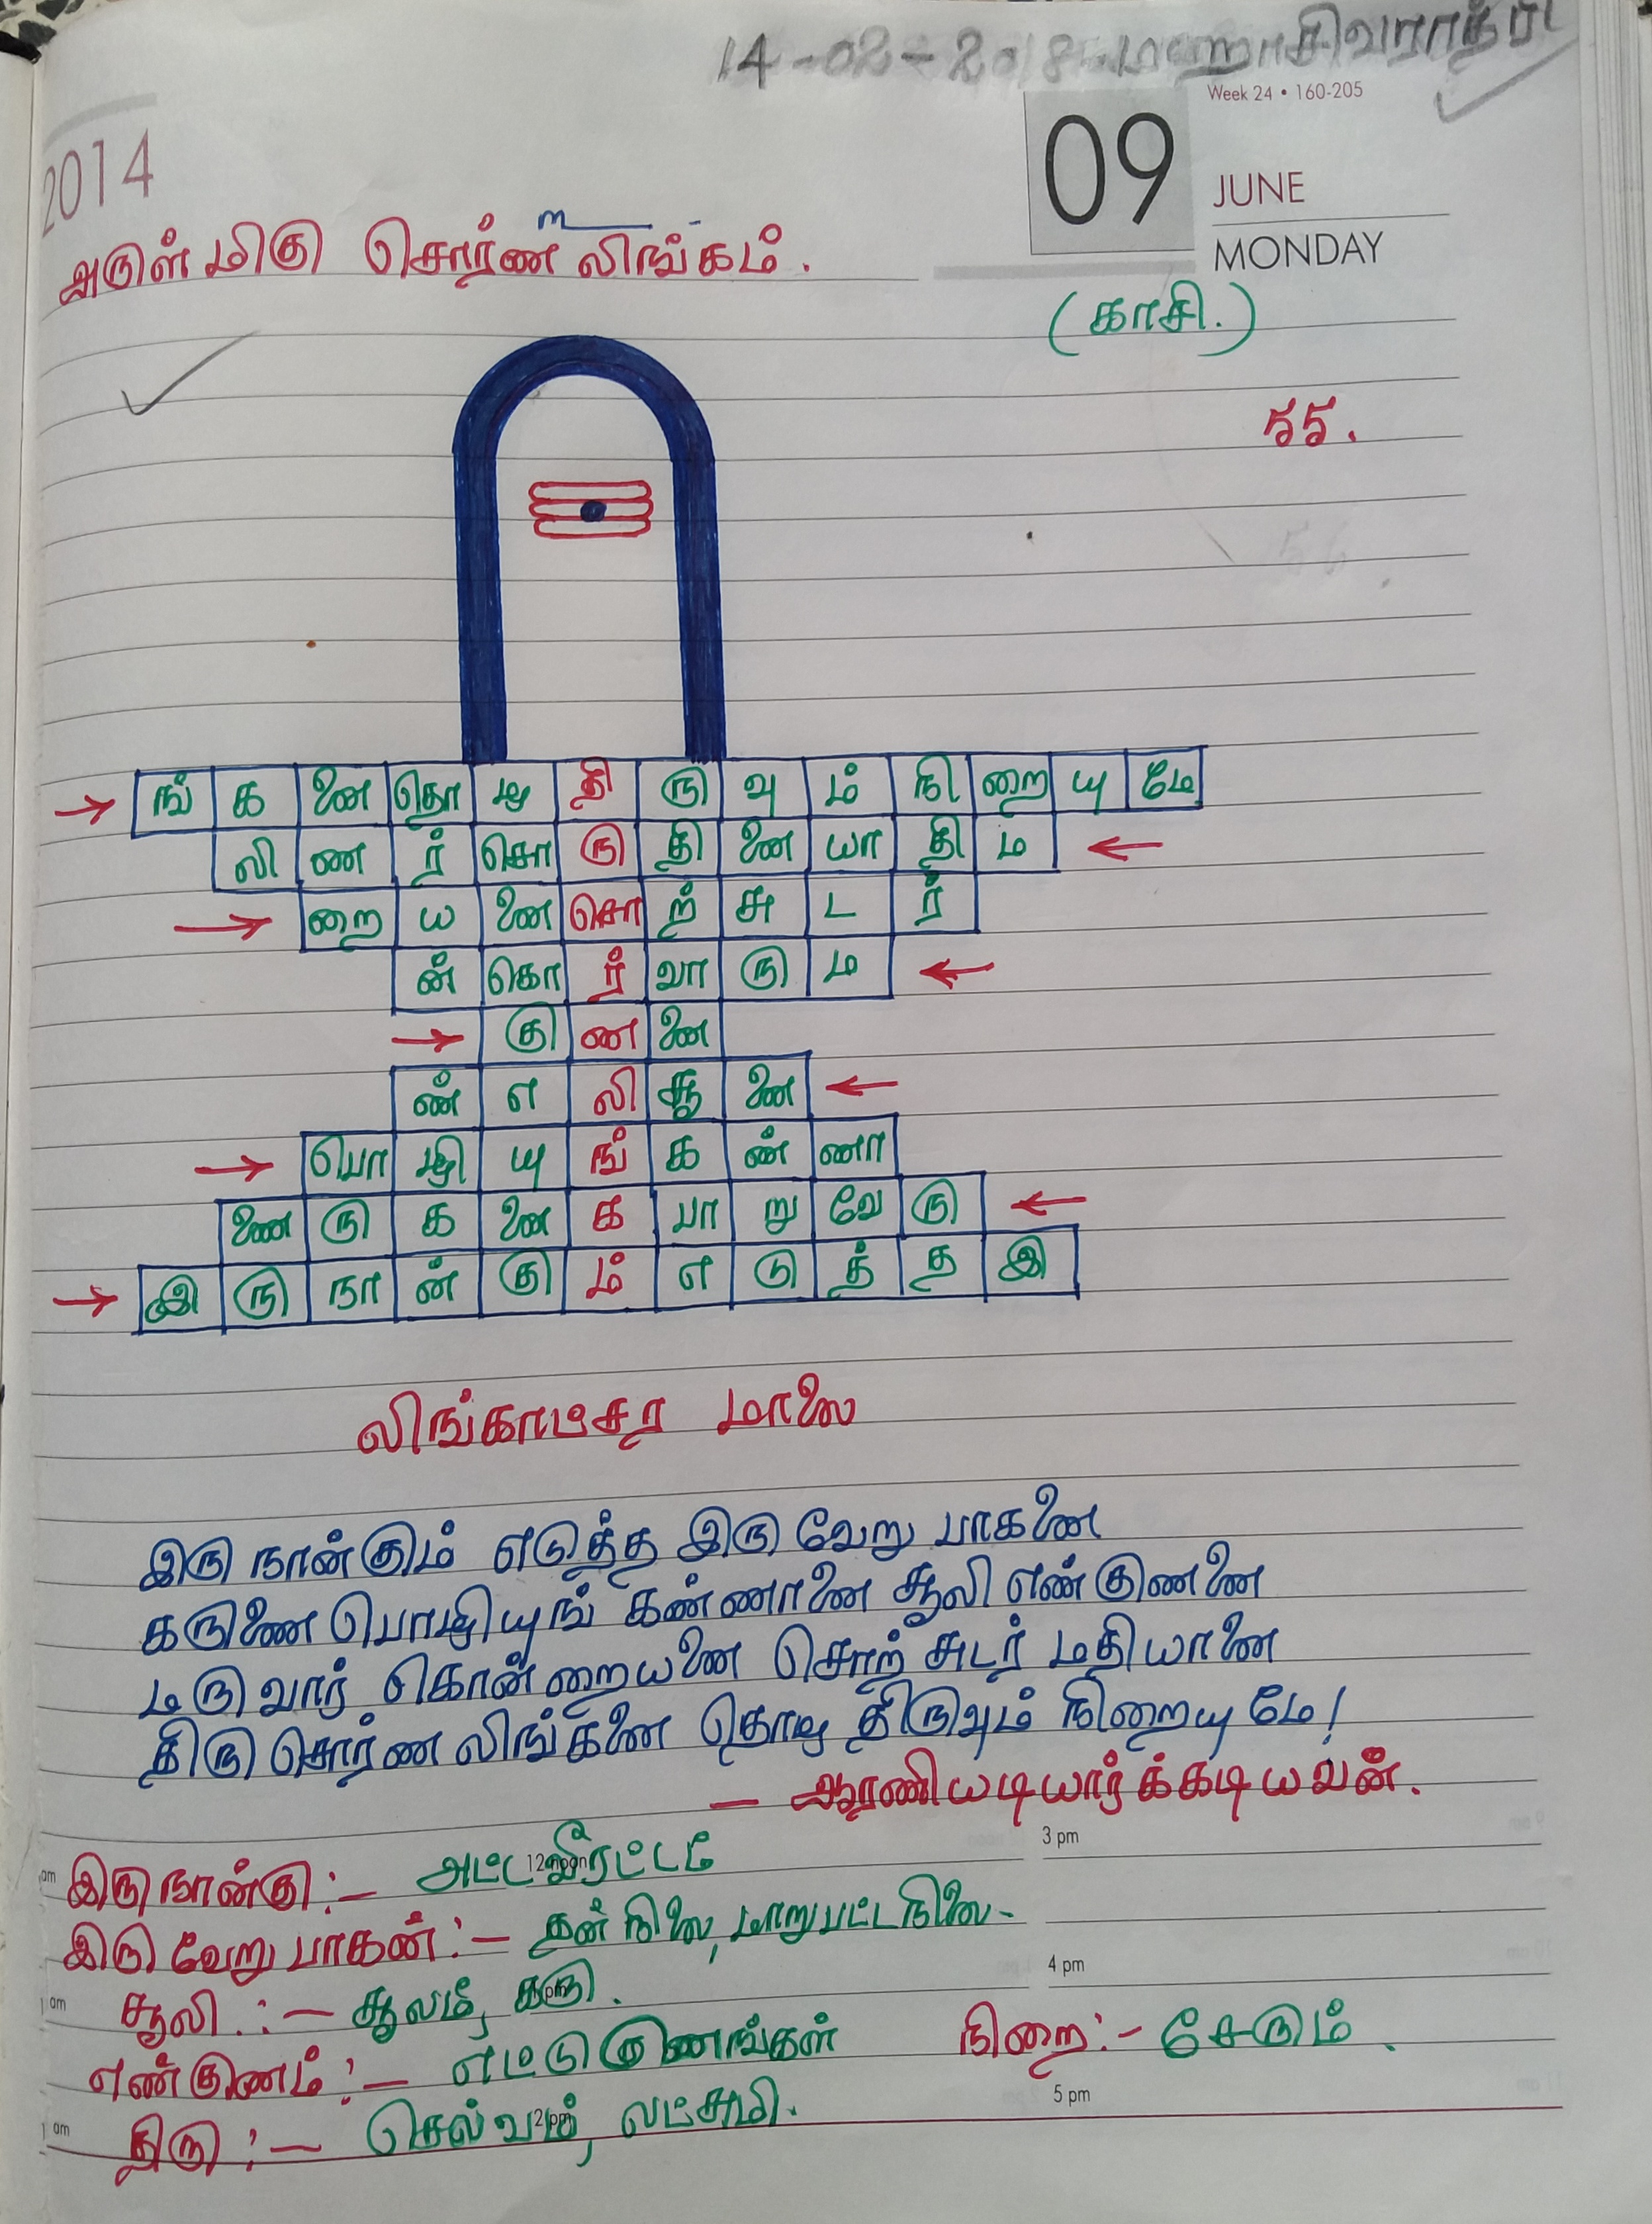 14-02-2018 மஹா சிவராத்ரி
Week 24 • 160-205
2014
09
JUNE
MONDAY
அருள்மிகு சொர்ண லிங்கம்.
(காசி.)
55.
ங் க னை தொ ழு தி ரு வு ம் நி றை யு மே
லி ண ர் சொ ரு தி னை யா தி ம
றை ய னை சொ ற் சு ட ர்
ன் கொ ர் வா ரு ம
கு ண னை
ண் எ லி சூ னை
பொ ழி யு ங் க ண் ணா
ணை ரு க னை க பா று வே ரு
இ ரு நா ன் கு ம் எ டு த் த இ
லிங்காட்சர மாலை
இரு நான்கும் எடுத்த இரு வேறு பாகனை
கருணை பொழியுங் கண்ணானை சூலி எண்குணனை
மருவார் கொன்றையனை சொற் சுடர் மதியானை
திரு சொர்ண லிங்கனை தொழு திருவும் நிறையுமே!
— ஆரணியடியார்க்கடியவன்.
இரு நான்கு :— அட்ட வீரட்டம்
இரு வேறு பாகன் :— தன் நிலை, மாறுபட்ட நிலை-
சூலி :— சூலம், கரு.
எண்குணம் :— எட்டு குணங்கள் நிறை :- சேரும்.
திரு :— செல்வம், லட்சுமி.
12 noon
3 pm
4 pm
5 pm
2 pm